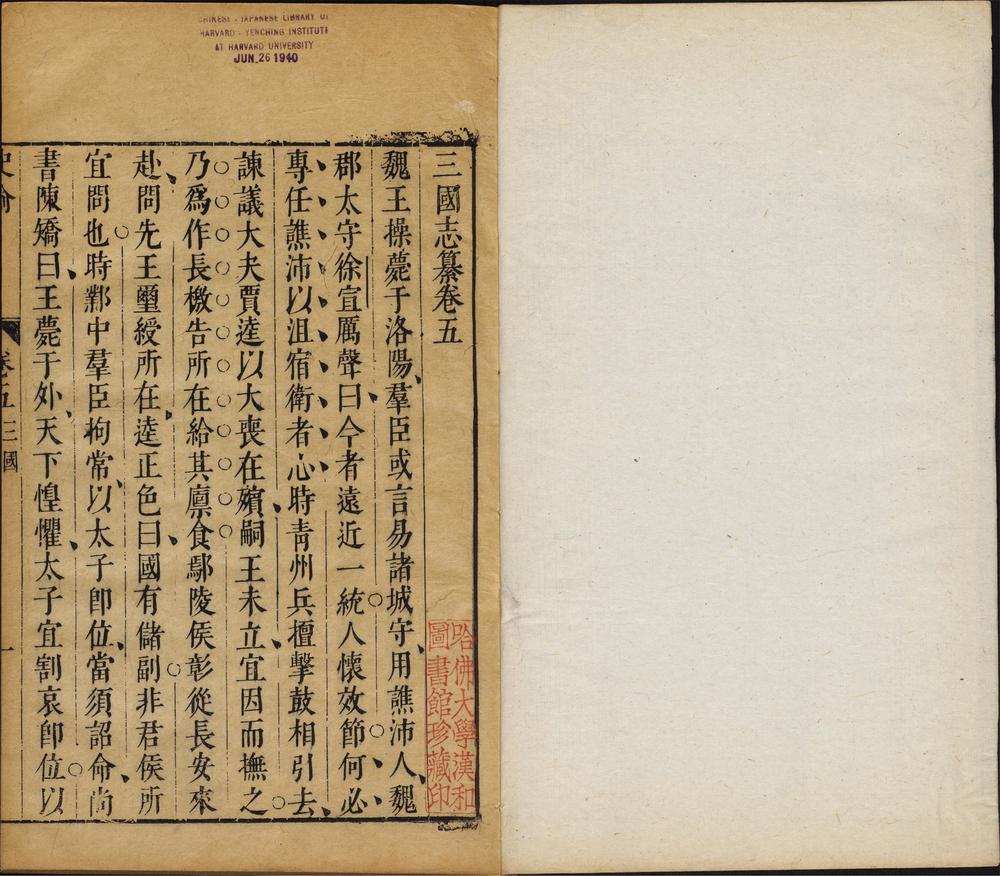 CHINESE - JAPANESE LIBRARY OF
HARVARD - YENCHING INSTITUTE
AT HARVARD UNIVERSITY
JUN 26 1940
三國志纂卷五
魏王操薨于洛陽、羣臣或言易諸城守、用譙沛人、魏
郡太守徐宣厲聲曰、今者遠近一統、人懷效節、何必
專任譙沛、以沮宿衛者心、時青州兵擅擊鼓相引去、
諫議大夫賈逵以大喪在殯、嗣王未立、宜因而撫之
乃爲作長檄告所在給其廪食鄢陵侯彰從長安來
赴、問先王璽綬所在、逵正色曰、國有儲副非君侯所
宜問也時鄴中羣臣拘常、以太子卽位、當須詔命、尚
書陳矯曰、王薨于外、天下惶懼、太子宜割哀卽位以
卷五 三國
一
哈佛大學漢和
圖書館珍藏印